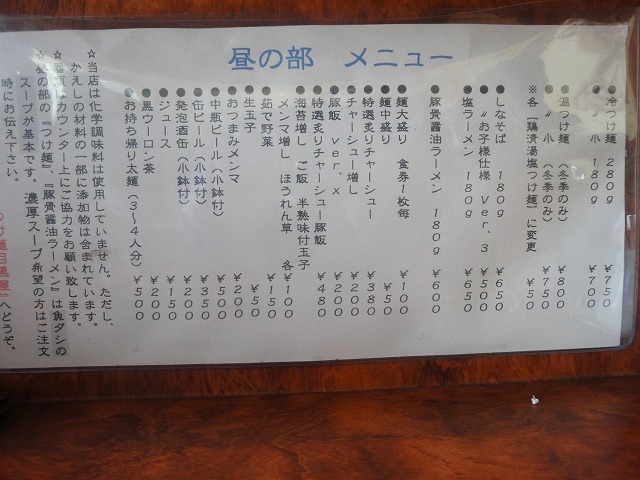 昼の部 メニュー
●冷つけ麺 280g ￥750
●〃 小 180g ￥700
●温つけ麺 (冬季のみ) ￥800
●〃 小 (冬季のみ) ￥750
※各「鶏清湯塩つけ麺」に変更 ￥50
●しなそば 180g ￥650
●〃お子様仕様 Ver,3 ￥500
●塩ラーメン 180g ￥650
●豚骨醤油ラーメン 180g ￥600
●麺大盛り 食券1枚毎 ￥100
●麺中盛り ￥50
●特選炙りチャーシュー ￥380
●チャーシュー増し ￥200
●豚飯 Ver,x ￥200
●特選炙りチャーシュー豚飯 ￥480
●海苔増し ご飯 半熟味付玉子
メンマ増し ほうれん草 各￥100
●茹で野菜 ￥150
●生玉子 ￥50
●おつまみメンマ ￥200
●中瓶ビール(小鉢付) ￥500
●缶ビール(小鉢付) ￥350
●発泡酒缶(小鉢付) ￥200
●ジュース ￥150
●黒ウーロン茶 ￥200
●お持ち帰り太麺(3〜4人分) ￥500
☆当店は化学調味料は使用していません。ただし、
かえしの材料の一部に添加物は含まれています。
☆食器はカウンター上にご協力をお願い致します。
☆昼の部の『つけ麺』『豚骨醤油ラーメン』は魚ダシの
スープが基本です。濃厚スープ希望の方はご注文
時にお伝え下さい。
つけ麺目黒屋』へどうぞ。